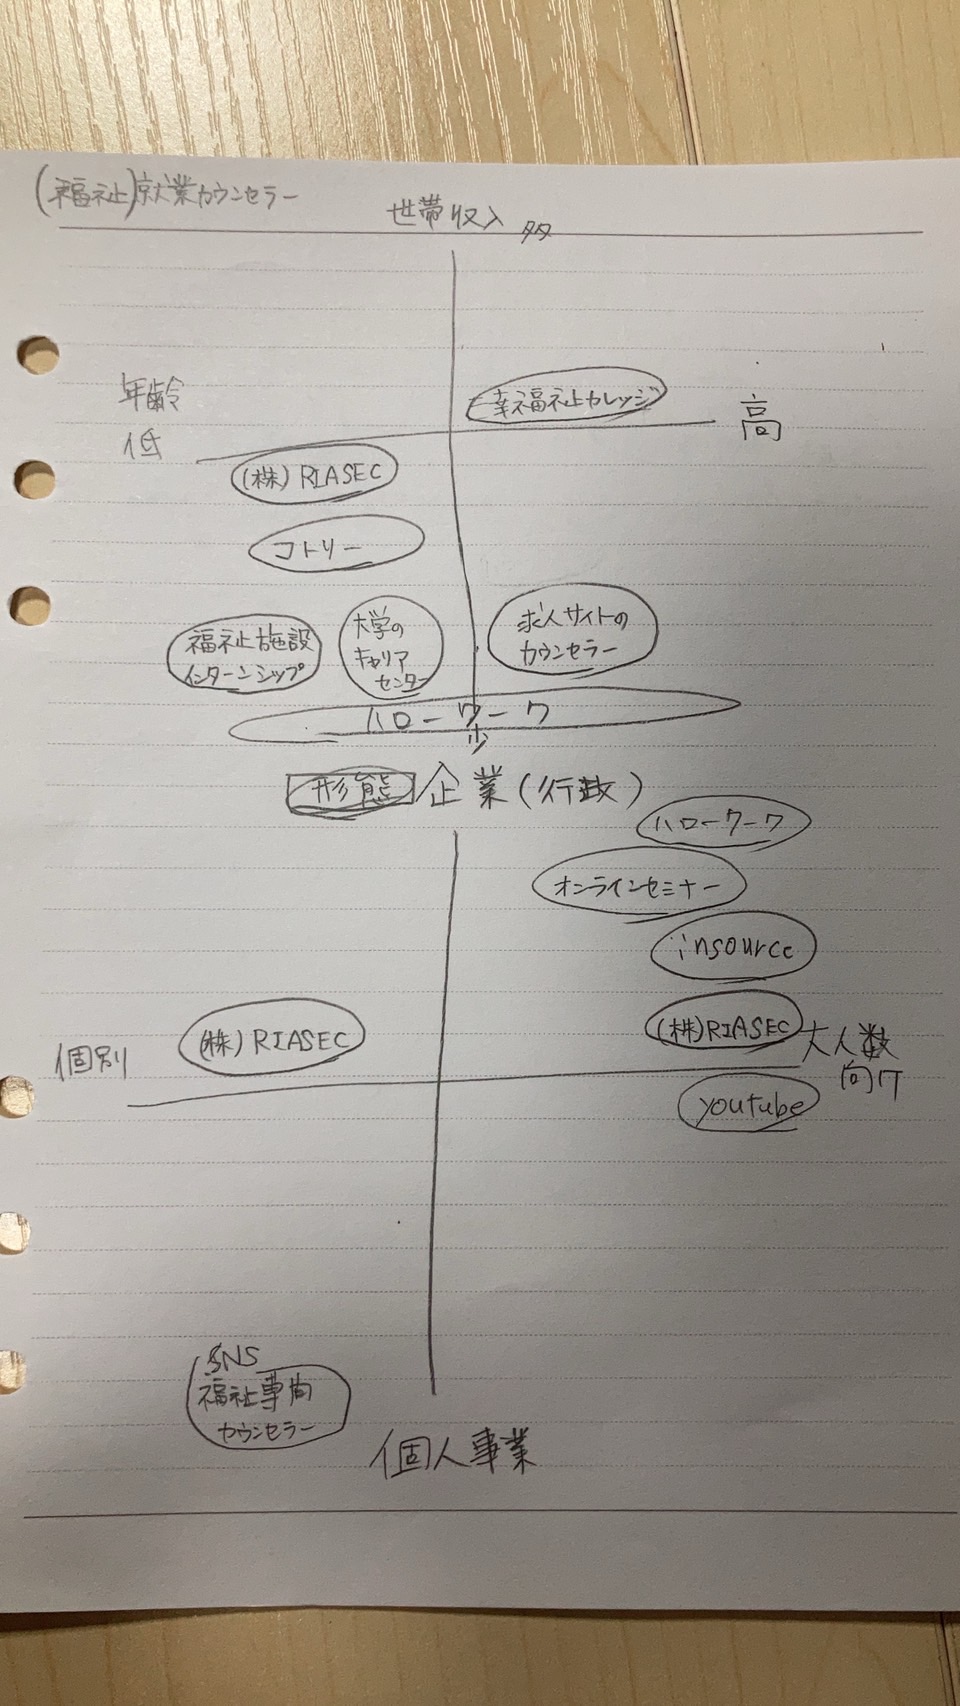 (福祉)就業カウンセラー
世帯収入 多
年齢
低
高
幸福祉カレッジ
(株)RIASEC
コトリー
福祉施設
インターンシップ
大学の
キャリア
センター
求人サイトの
カウンセラー
ハローワーク
少
形態 企業(行政)
ハローワーク
オンラインセミナー
insource
(株)RIASEC
(株)RIASEC
個別
大人数
向け
youtube
SNS
福祉専門
カウンセラー
個人事業